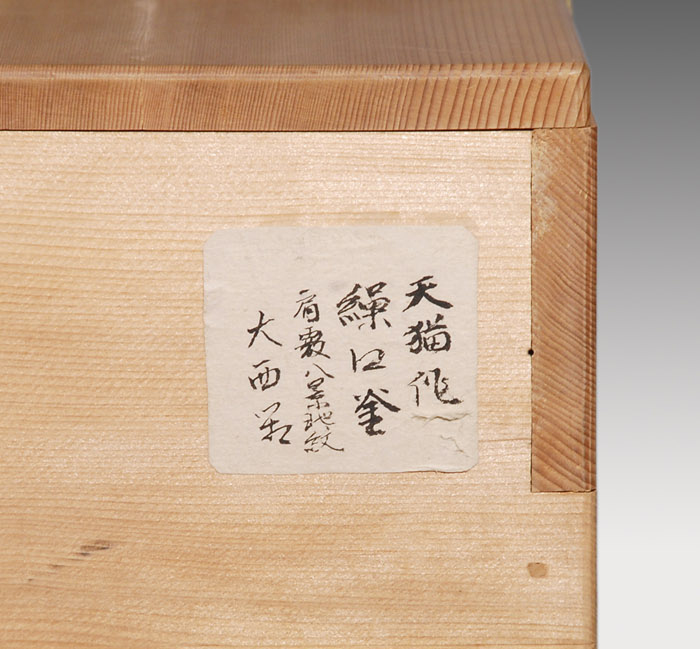 天猫作
繰口釜
肩霰八景地紋
大西